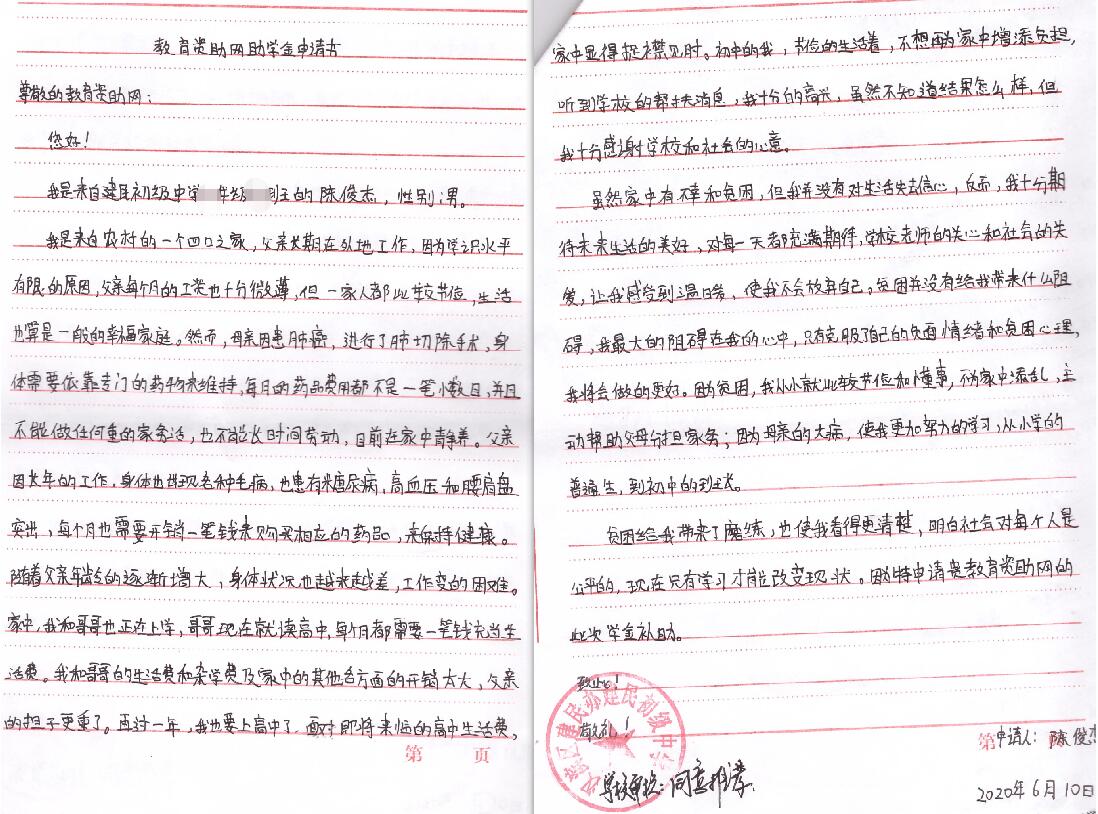 教育资助网助学金申请书
尊敬的教育资助网：
您好！
我是来自建民初级中学 年级 班的陈俊杰，性别男。
我是来自农村的一个四口之家，父亲长期在外地工作，因为学识水平
有限的原因，父亲每个月的工资也十分微薄，但一家人都比较节俭，生活
也算是一般的幸福家庭。然而，母亲因患肺癌，进行了肺切除手术，身
体需要依靠专门的药物来维持，每月的药品费用都不是一笔小数目，并且
不能做任何重的家务活，也不能长时间劳动，目前在家中静养。父亲
因长年的工作，身体也出现各种毛病，也患有糖尿病，高血压和腰肩盘
突出，每个月也需要开销一笔钱来购买相应的药品，来保持健康。
随着父亲年龄的逐渐增大，身体状况也越来越差，工作变的困难。
家中，我和哥哥也正在上学，哥哥现在就读高中，每个月都需要一笔钱充当生
活费。我和哥哥的生活费和杂学费及家中的其他各方面的开销太大，父亲
的担子更重了。再过一年，我也要上高中了，面对即将来临的高中生活费，
第 页
家中显得捉襟见肘。初中的我，节俭的生活着，不想再为家中增添负担，
听到学校的帮扶消息，我十分的高兴，虽然不知道结果怎么样，但
我十分感谢学校和社会的心意。
虽然家中有不幸和贫困，但我并没有对生活失去信心，反而，我十分期
待未来生活的美好，对每一天都充满期待，学校老师的关心和社会的关
爱，让我感受到温暖，使我不会放弃自己，贫困并没有给我带来什么阻
碍，我最大的阻碍在我的心中，只有克服了自己的负面情绪和贫困心理，
我将会做的更好。因为贫困，我从小就比较节俭和懂事，不为家中添乱，主
动帮助父母分担家务；因为母亲的大病，使我更加努力的学习，从小学的
普遍生，到初中的
贫困给我带来了磨练，也使我看得更清楚，明白社会对每个人是
公平的，现在只有学习才能改变现状。因为特申请贵教育资助网的
此次学金补助。
致此！
敬礼！
区建民办建民初级中学
学校审核：同意推荐
第
申请人：陈俊杰
2020年6月10日